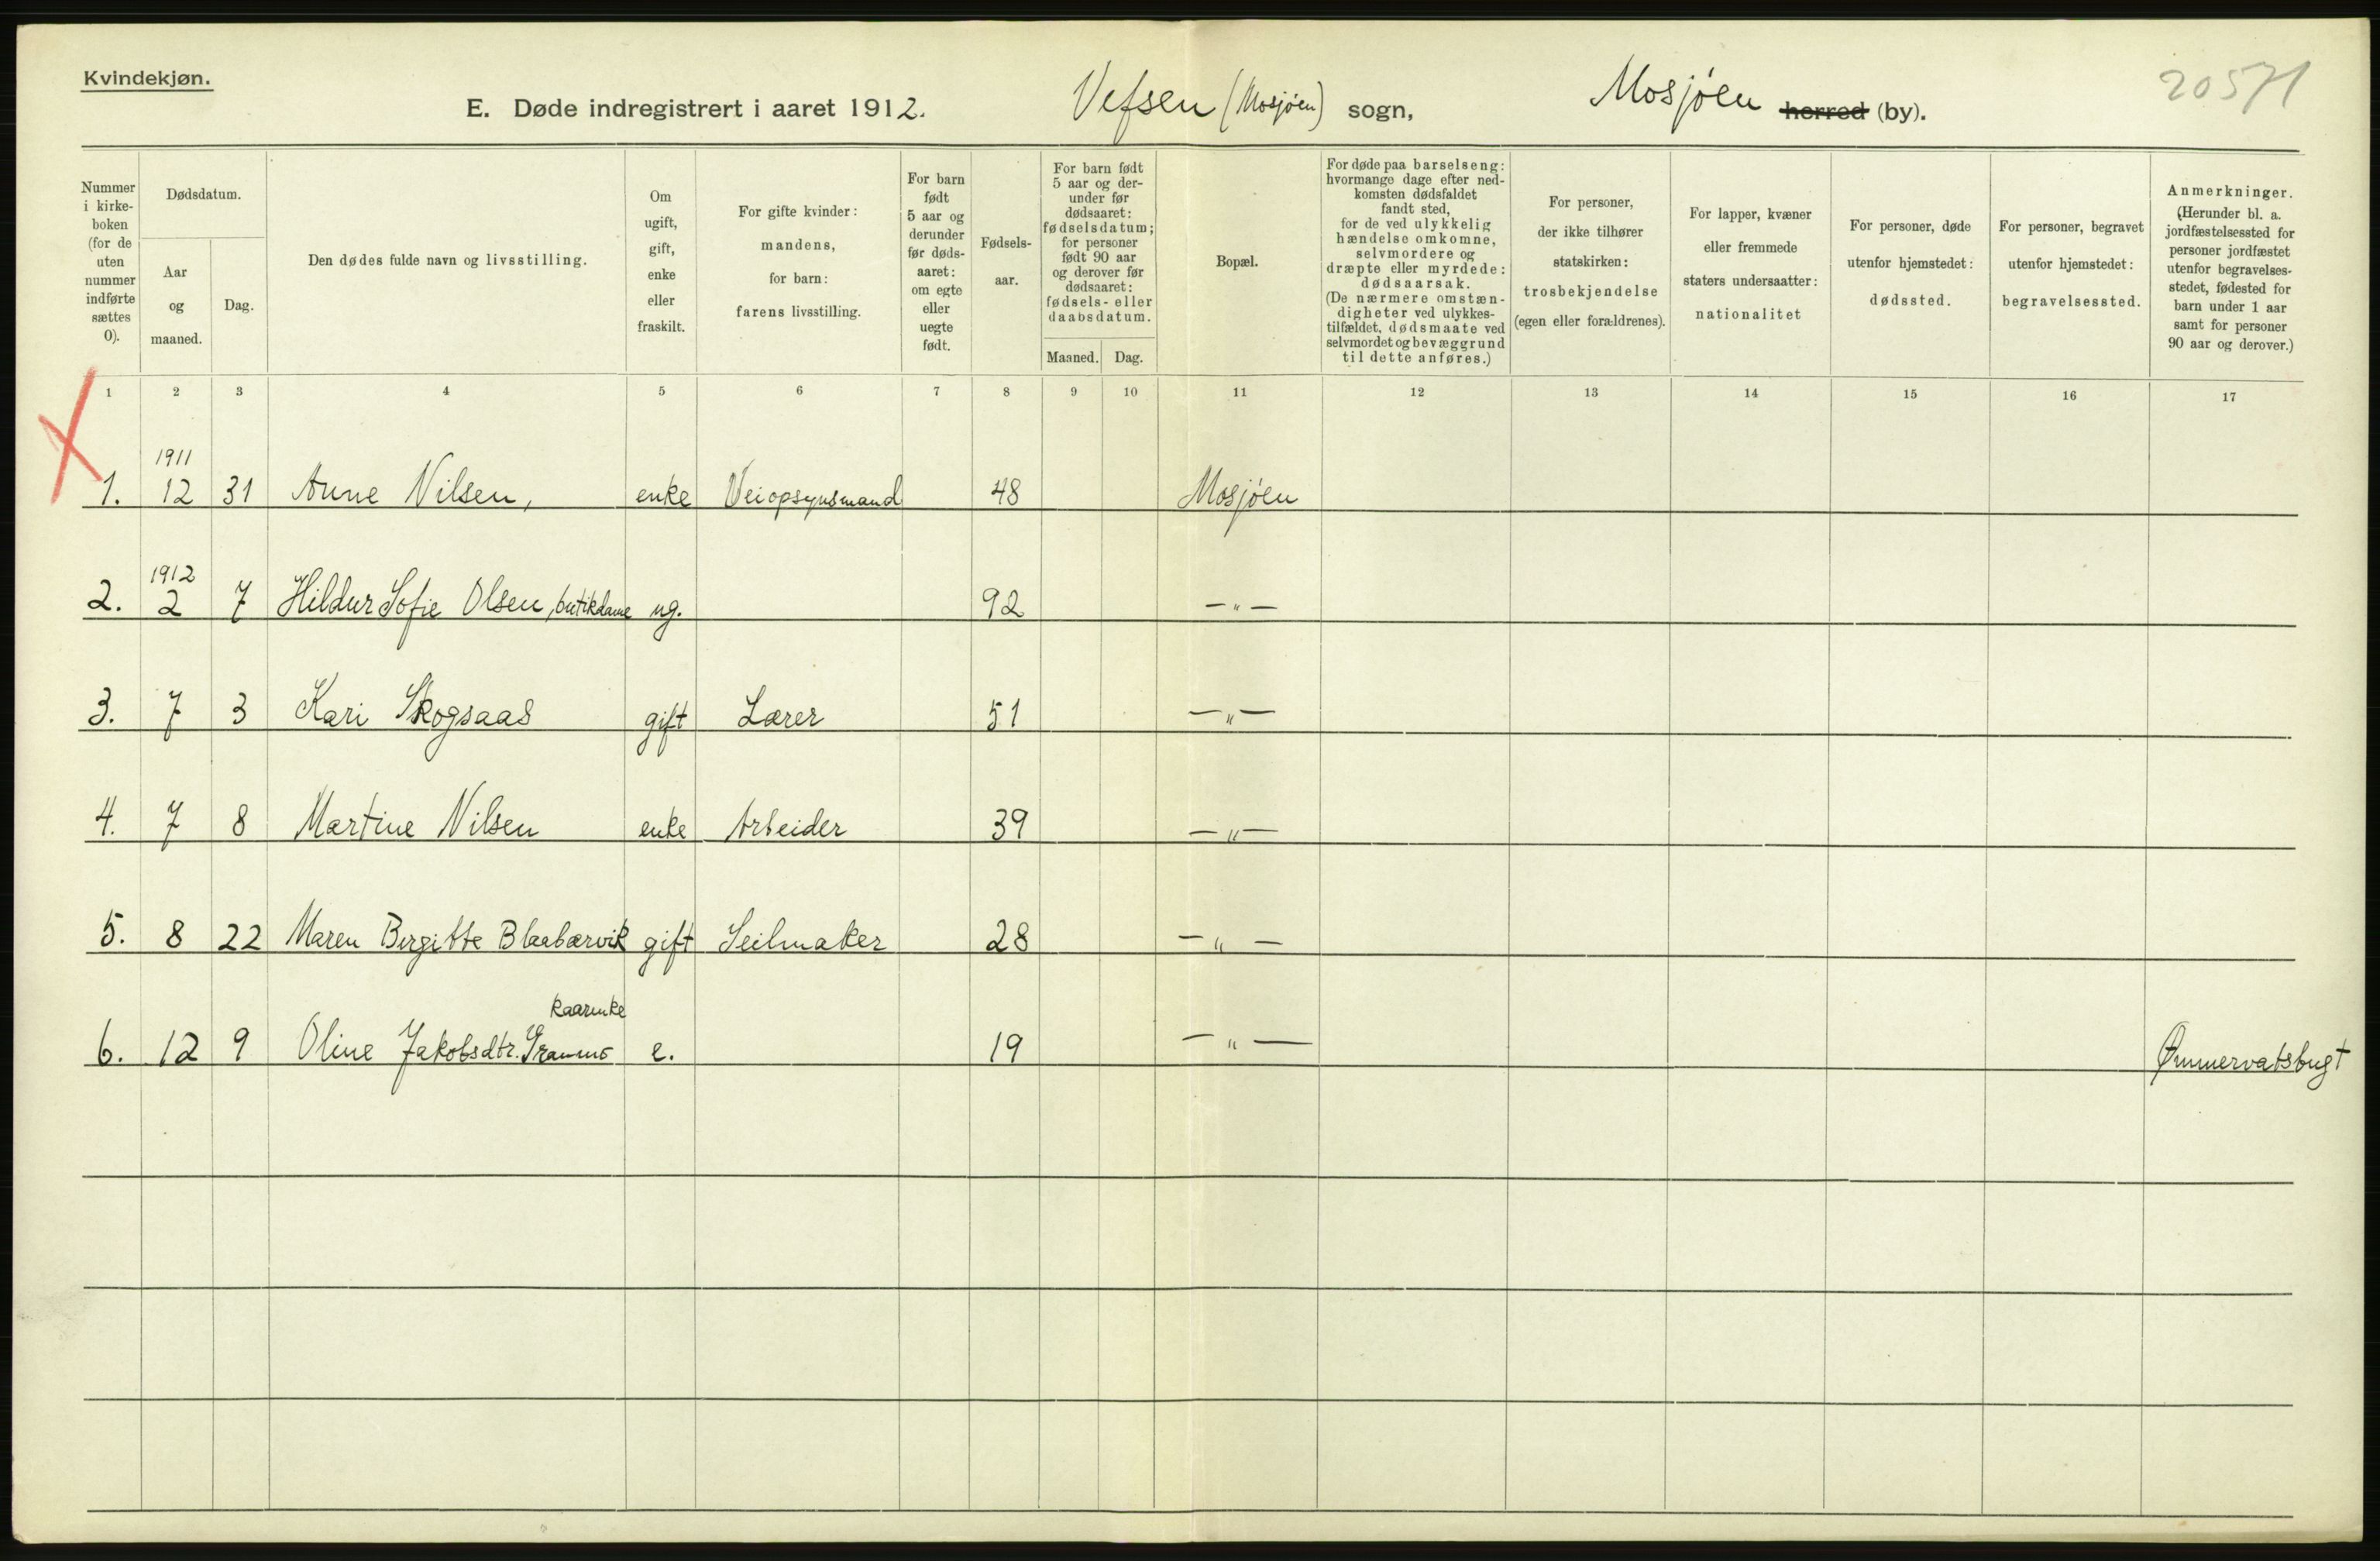 Kvindekjøn.
E. Døde indregistrert i aaret 1912. Vefsen (Mosjöen) sogn, Mosjöen herred (by).
20571
Nummer i kirke-boken (for de uten nummer indførte sættes 0).
Dødsdatum.
Aar og maaned.
Dag.
Den dødes fulde navn og livsstilling.
Om ugift, gift, enke eller fraskilt.
For gifte kvinder: mandens, for barn: farens livsstilling.
For barn født 5 aar og derunder før døds-aaret: om egte eller uegte født.
Fødsels-aar.
For barn født 5 aar og der-under før dødsaaret: fødselsdatum; for personer født 90 aar og derover før dødsaaret: fødsels- eller daabsdatum.
Maaned. Dag.
Bopæl.
For døde paa barselseng: hvormange dage efter ned-komsten dødsfaldet fandt sted, for de ved ulykkelig hændelse omkomne, selvmordere og dræpte eller myrdede: dødsaarsak. (De nærmere omstæn-digheter ved ulykkes-tilfældet, dødsmaate ved selvmordet og bevæggrund til dette anføres.)
For personer, der ikke tilhører statskirken: trosbekjendelse (egen eller forældrenes).
For lapper, kvæner eller fremmede staters undersaatter: nationalitet
For personer, døde utenfor hjemstedet: dødssted.
For personer, begravet utenfor hjemstedet: begravelsessted.
Anmerkninger. (Herunder bl. a. jordfæstelsessted for personer jordfæstet utenfor begravelses-stedet, fødested for barn under 1 aar samt for personer 90 aar og derover.)
1 2 3 4 5 6 7 8 9 10 11 12 13 14 15 16 17
1911
1. 12 31 Anne Nilsen, enke Veiopsynsmand 48 Mosjöen
1912
2. 2 7 Hildur Sofie Olsen, butikdame ug. 92 — „ —
3. 7 3 Kari Skogsaas gift Lærer 51 — „ —
4. 7 8 Martine Nilsen enke Arbeider 39 — „ —
5. 8 22 Maren Bergitte Blaabærvik gift Seilmaker 28 — „ —
kaarenke
6. 12 9 Oline Jakobsdtr. e. 19 — „ — Ømmervatsbugt